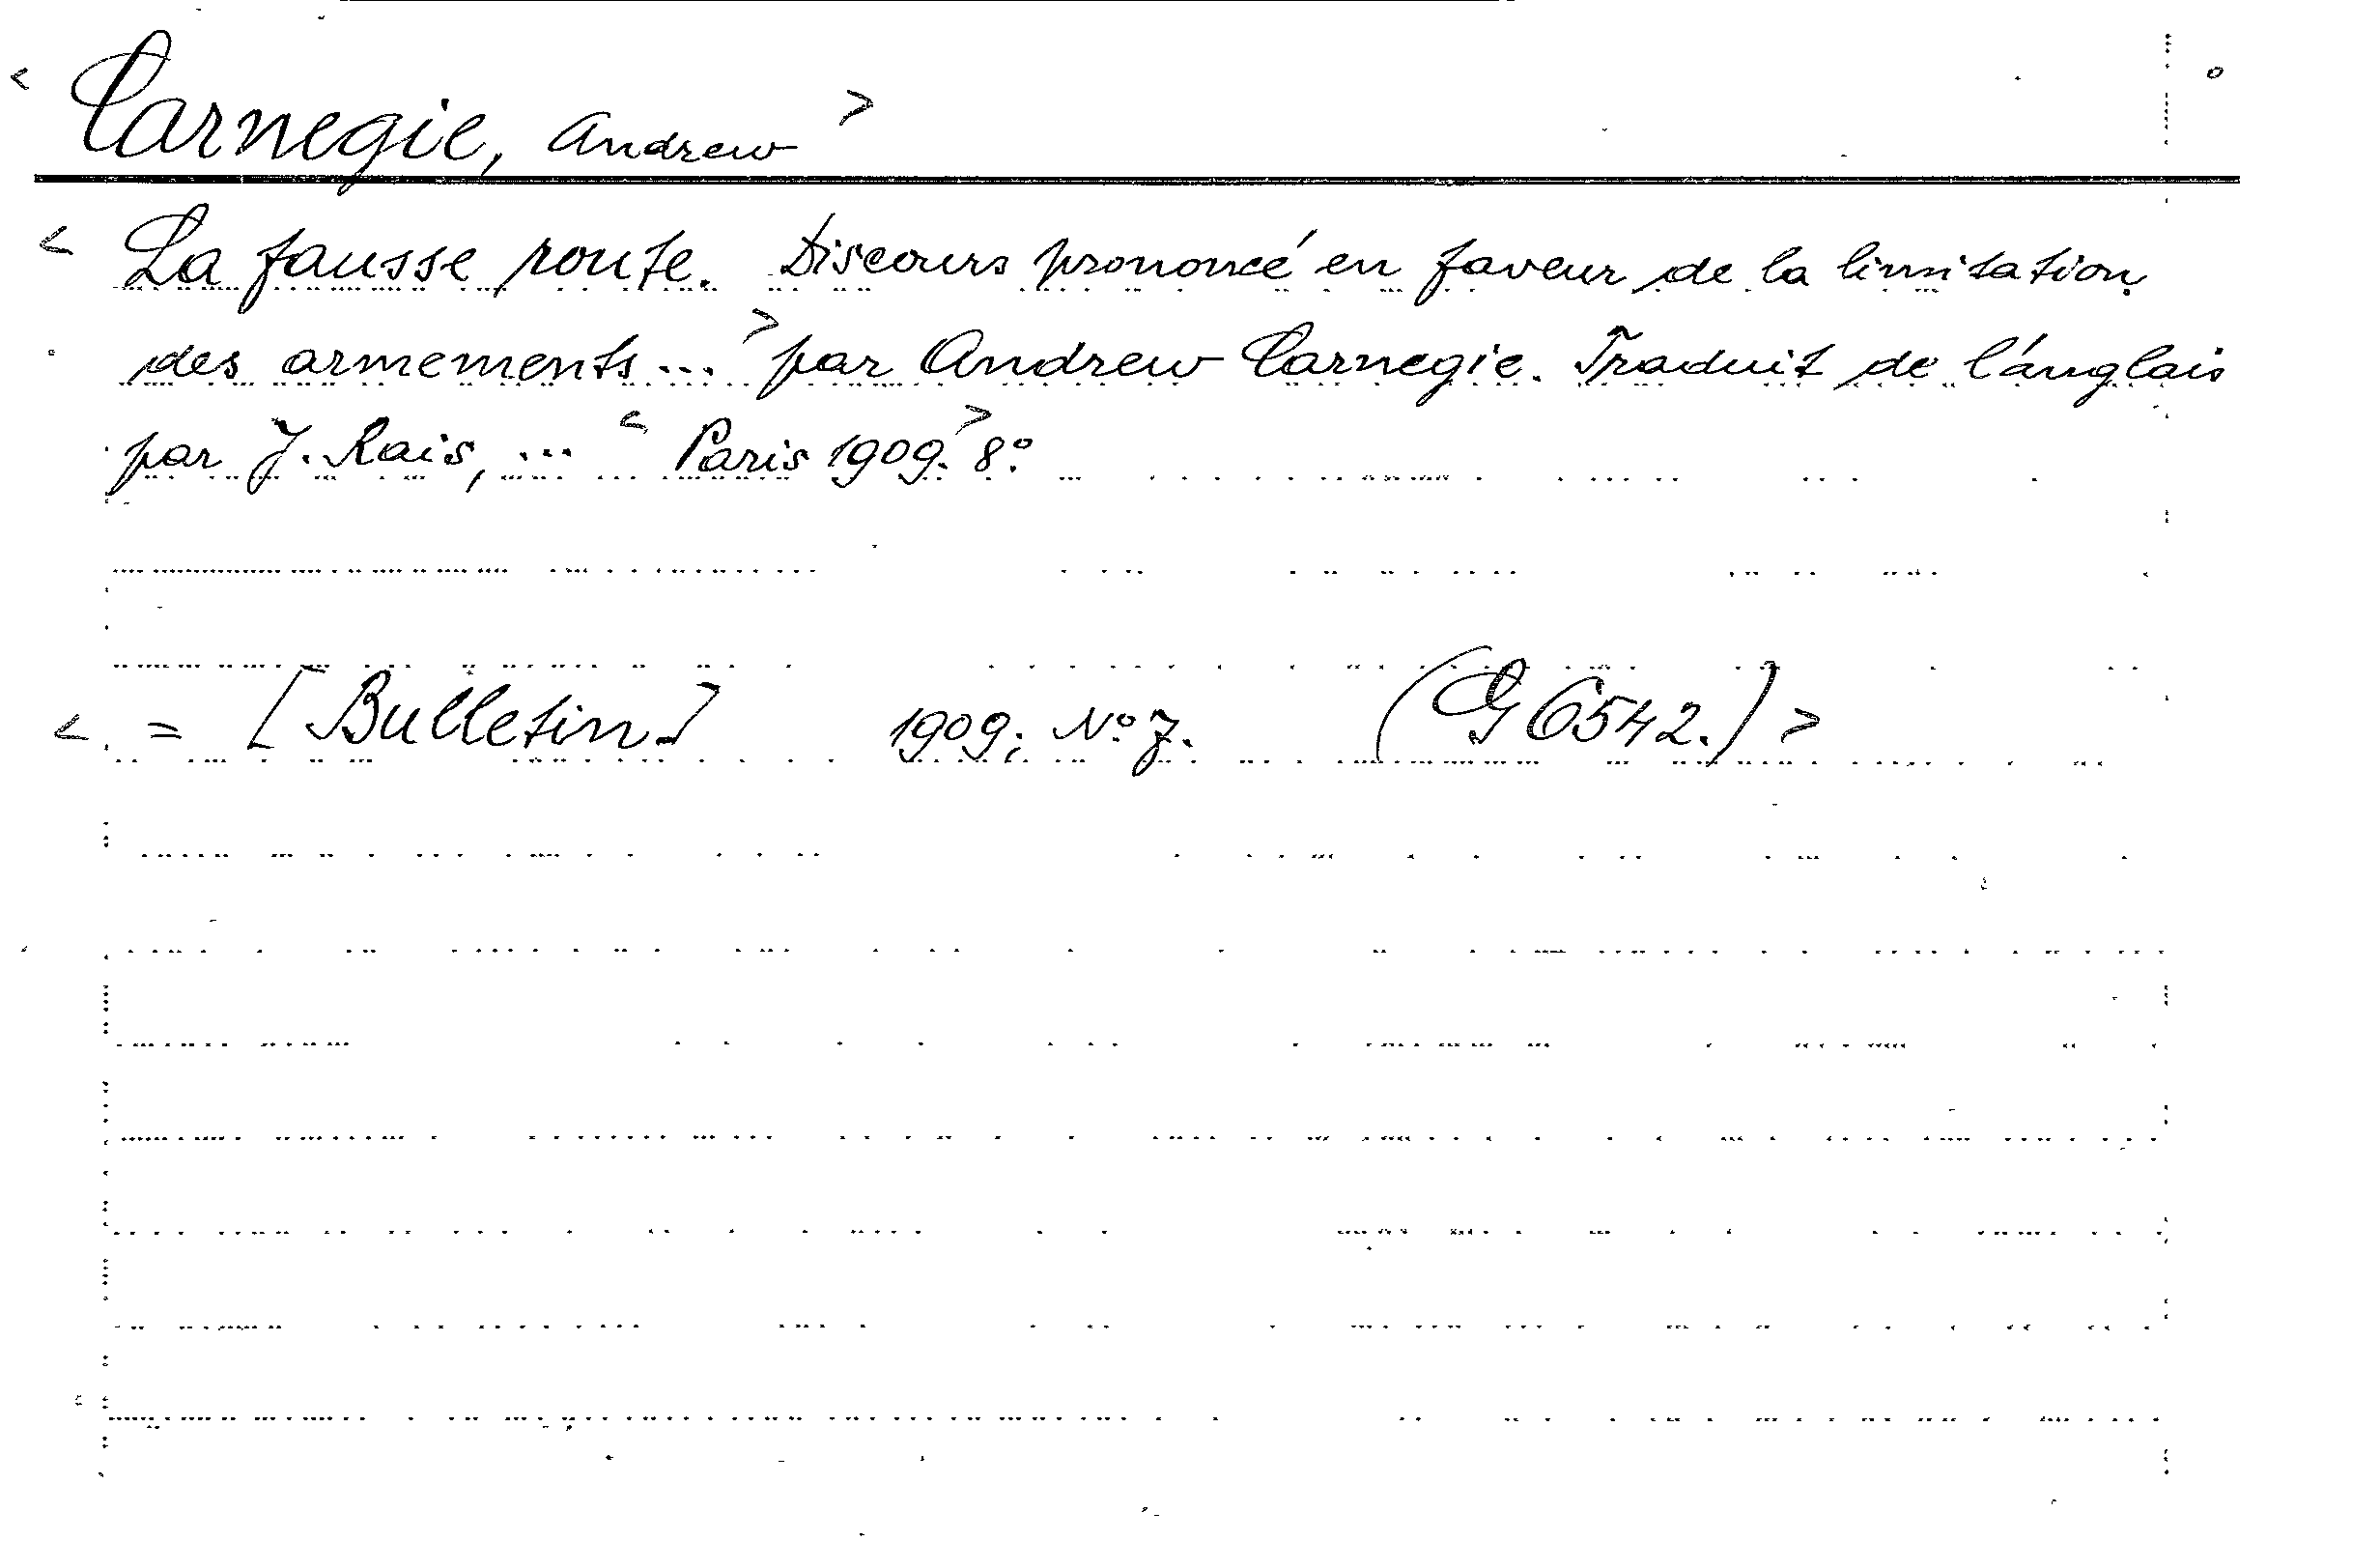 < Carnegie, Andrew >
< La fausse route. Discours prononcé en faveur de la limitation
des armements ... > par Andrew Carnegie. Traduit de l'anglais
par J. Rais, ... < Paris 1909. > 8°.
< = [Bulletin] 1909; No 7. (G 6542.) >